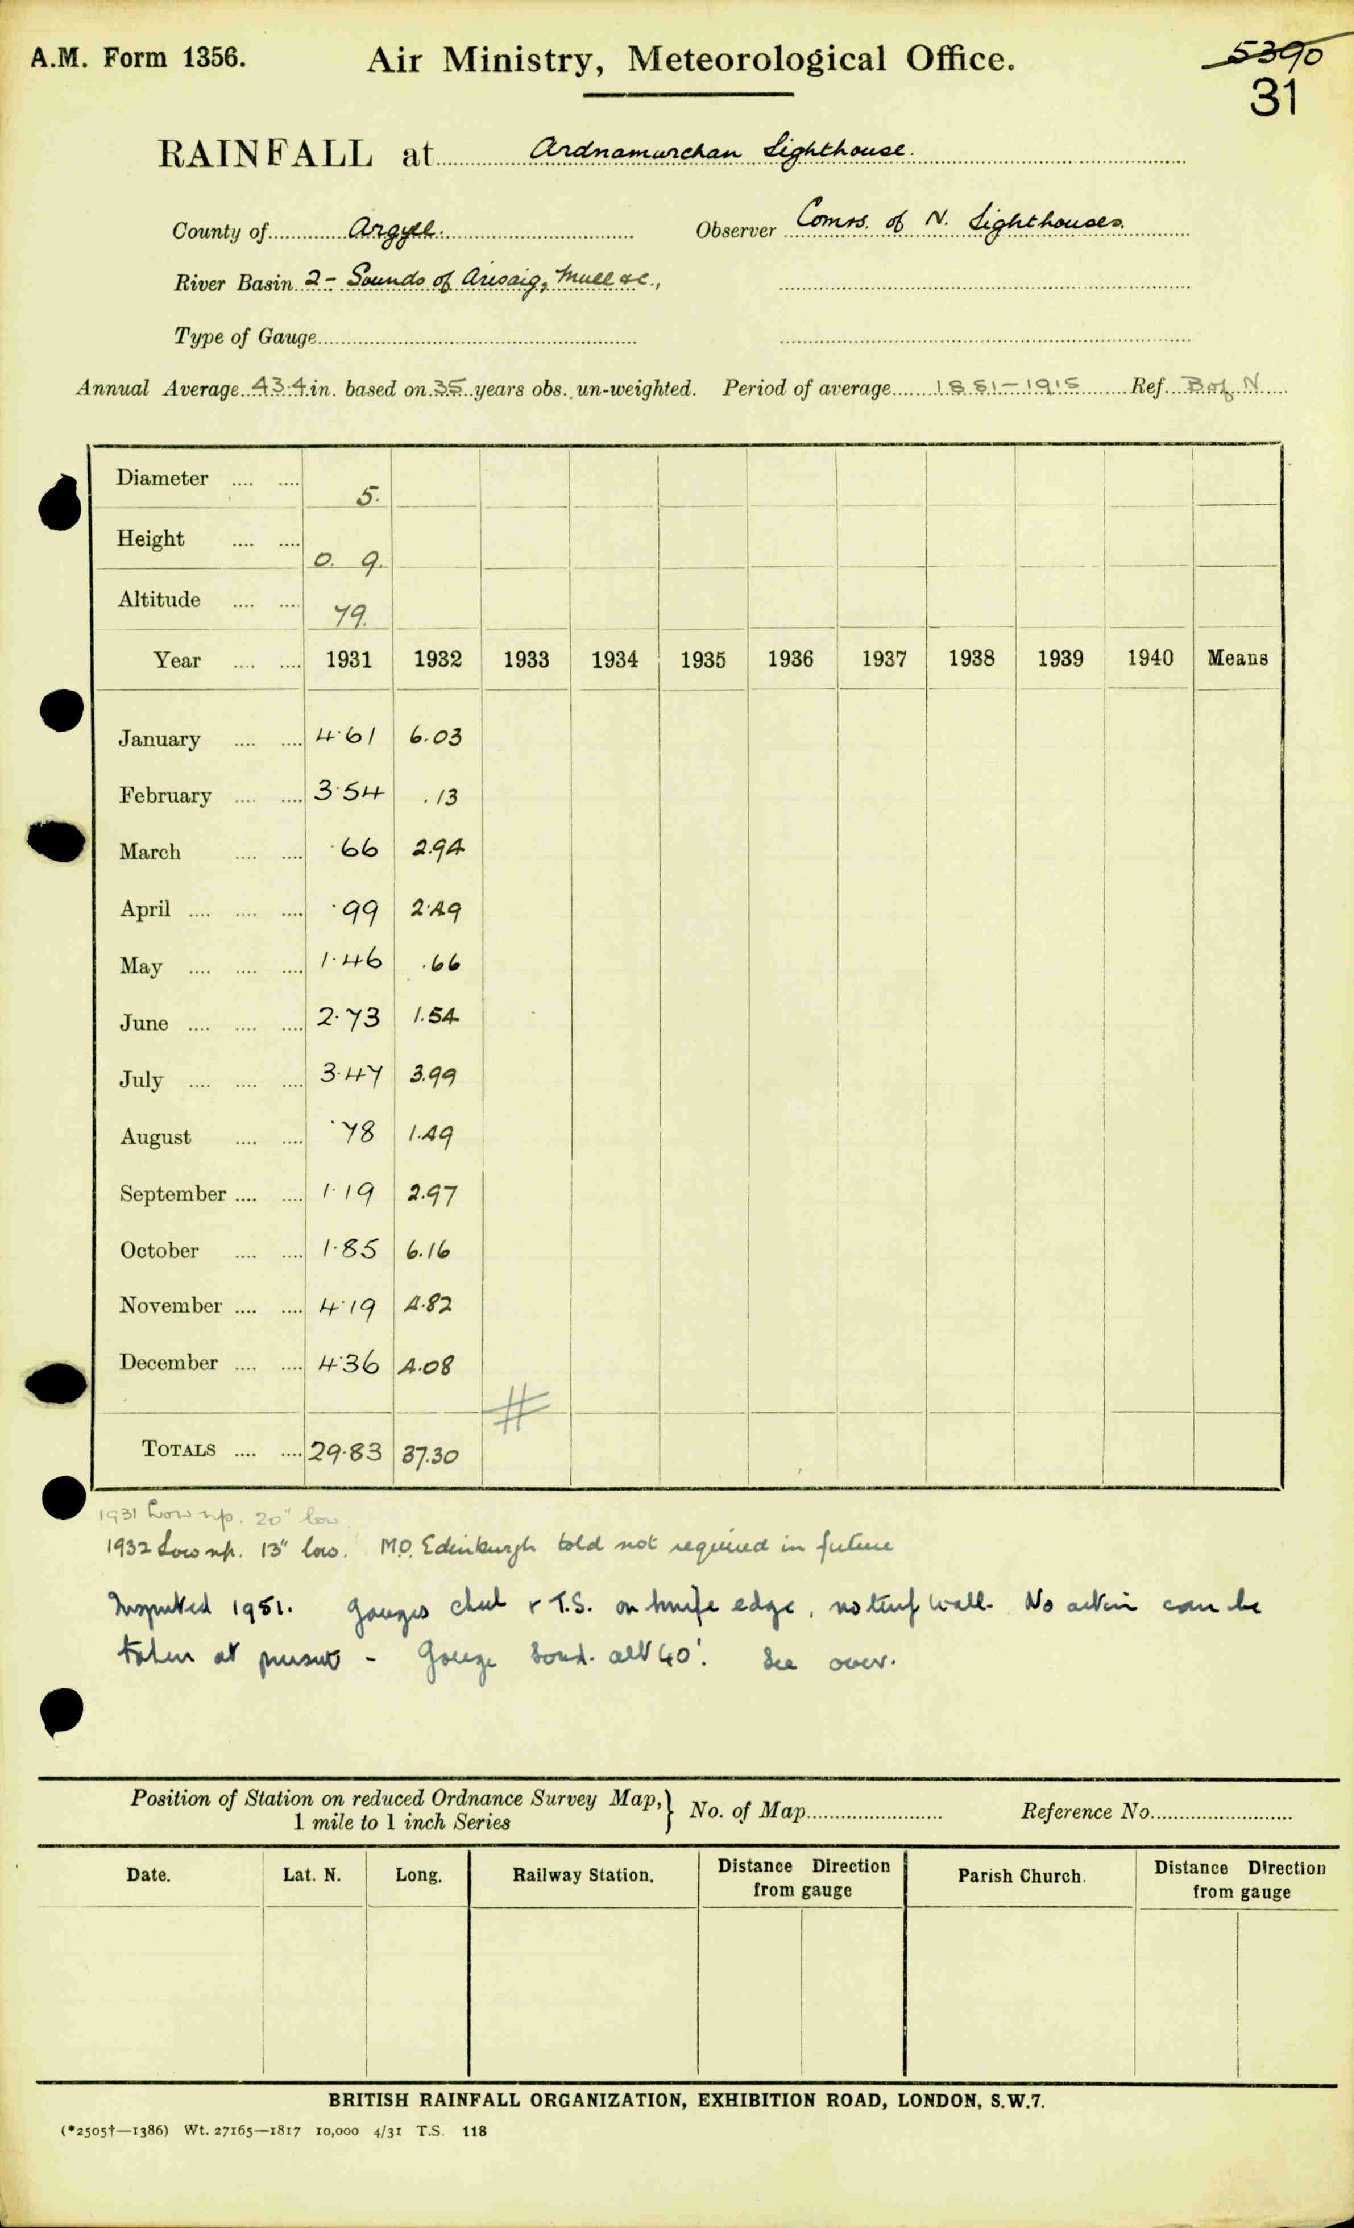 A.M. Form 1356.
Air Ministry, Meteorological Office.
5390
31
RAINFALL at Ardnamurchan Lighthouse.
County of Argyll. Observer Comrs. of N. Lighthouses.
River Basin 2 - Sounds of Arisaig, Mull &c.,
Type of Gauge
Annual Average 43.4 in. based on 35 years obs. un-weighted. Period of average 1881-1915 Ref. B of N
Diameter .... .... 5.
Height .... .... 0. 9.
Altitude .... .... 79.
Year .... .... 1931 1932 1933 1934 1935 1936 1937 1938 1939 1940 Means
January .... .... 4.61 6.03
February .... .... 3.54 .13
March .... .... .66 2.94
April .... .... .... .99 2.49
May .... .... .... 1.46 .66
June .... .... .... 2.73 1.54
July .... .... .... 3.47 3.99
August .... .... .78 1.49
September .... .... 1.19 2.97
October .... .... 1.85 6.16
November .... .... 4.19 4.82
December .... .... 4.36 4.08
#
TOTALS .... .... 29.83 37.30
1931 Low 20" low
1932 Low 13" low. M.O. Edinburgh told not required in future
Inspected 1951. Gauges & T.S. on knife edge, no turf wall. No action can be
taken at present - Gauge alt 40'. See over.
Position of Station on reduced Ordnance Survey Map,} No. of Map Reference No.
1 mile to 1 inch Series
Date. Lat. N. Long. Railway Station. Distance Direction from gauge Parish Church. Distance Direction from gauge
BRITISH RAINFALL ORGANIZATION, EXHIBITION ROAD, LONDON, S.W.7.
(*2505†—1386) Wt. 27165—1817 10,000 4/31 T.S. 118